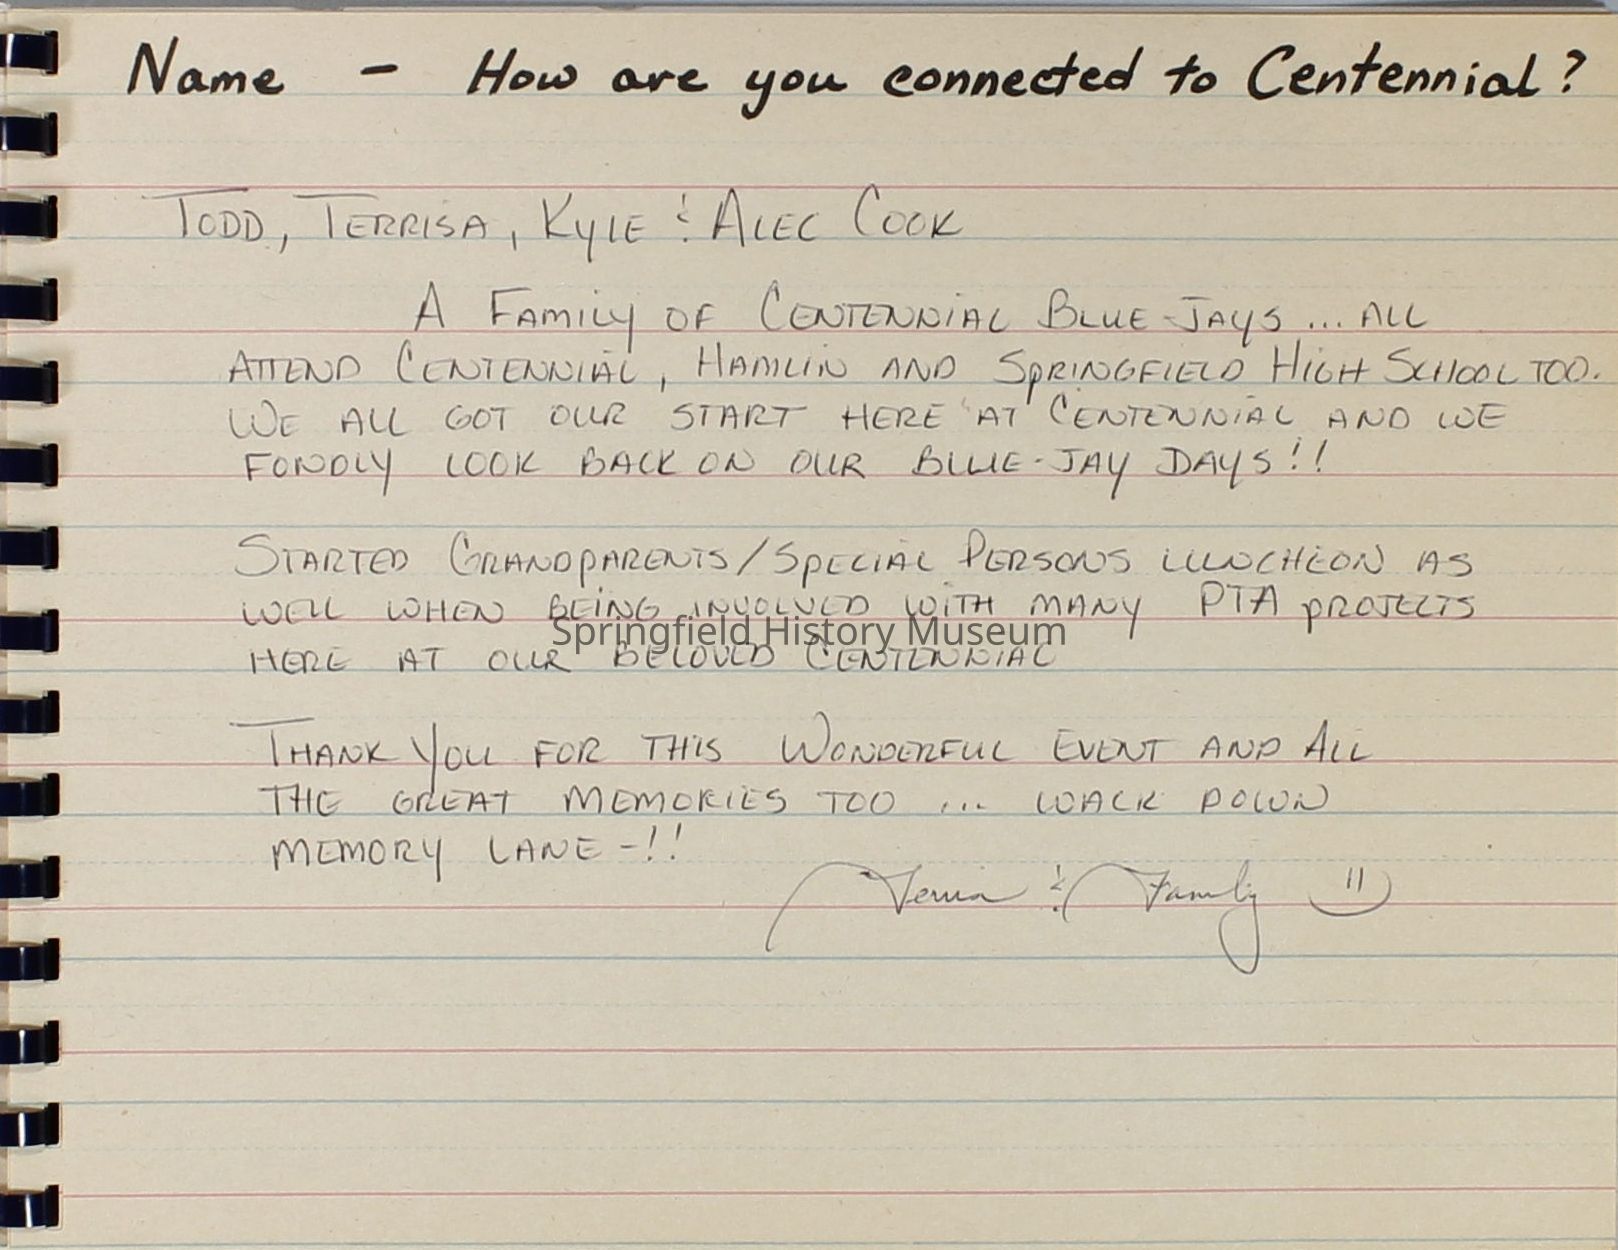 Name - How are you connected to Centennial?
TODD, TERRISA, KYLE & ALEC COOK
A FAMILY OF CENTENNIAL BLUE-JAYS ... ALL
ATTEND CENTENNIAL, HAMLIN AND SPRINGFIELD HIGH SCHOOL TOO.
WE ALL GOT OUR START HERE AT CENTENNIAL AND WE
FONDLY LOOK BACK ON OUR BLUE-JAY DAYS!!
STARTED GRANDPARENTS/SPECIAL PERSONS LUNCHEON AS
WELL WHEN BEING INVOLVED WITH MANY PTA PROJECTS
Springfield History Museum
HERE AT OUR BELOVED CENTENNIAL
THANK YOU FOR THIS WONDERFUL EVENT AND ALL
THE GREAT MEMORIES TOO ... WALK DOWN
MEMORY LANE-!!
Terrisa & Family